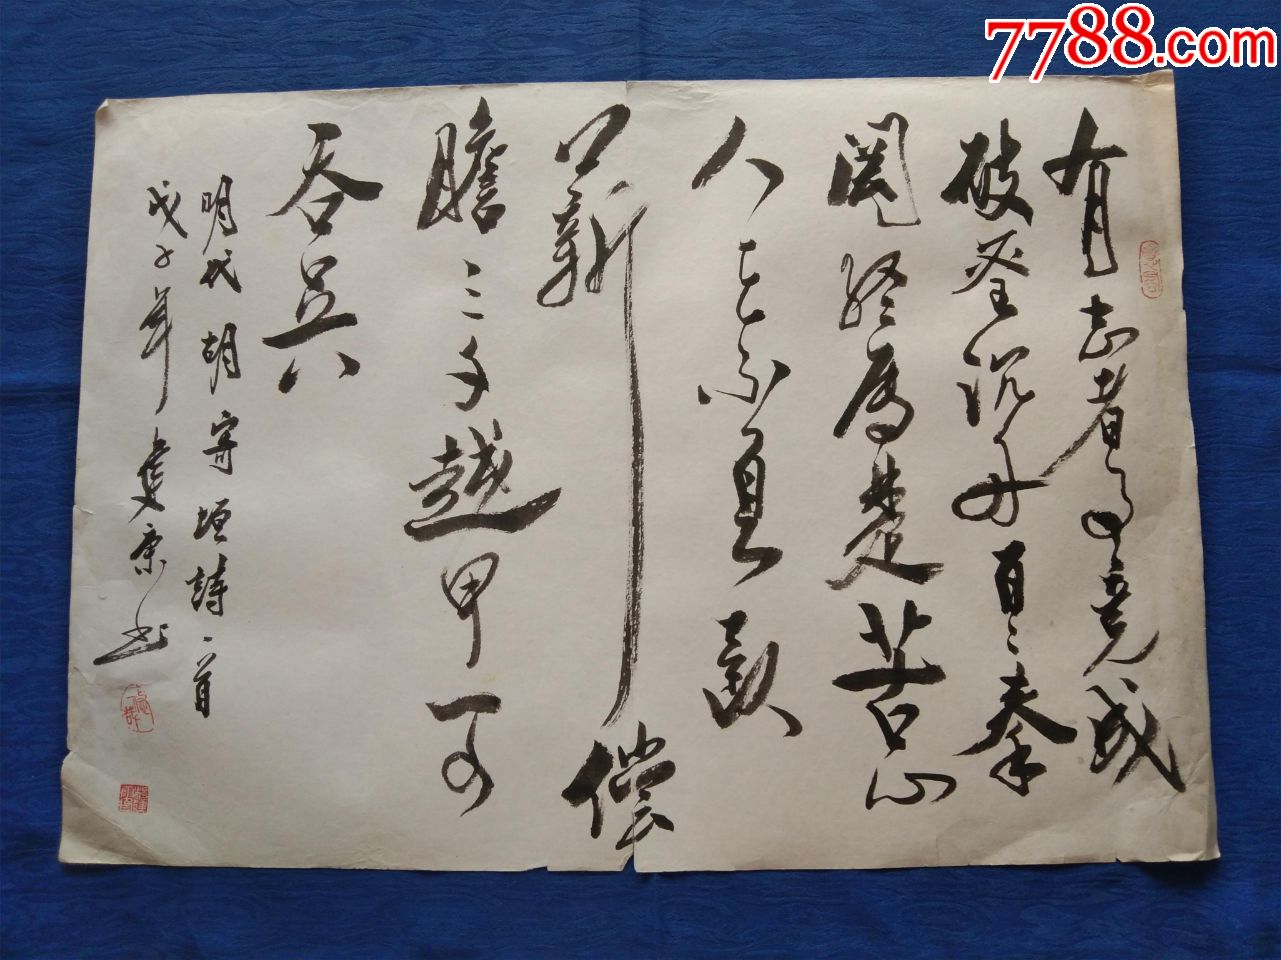 7788.com
有志者事竟成
破釜沉舟百二秦
関终属楚苦心
人天不負
薪偿
膽三千越甲可
吞吴
明代胡寄垣詩一首
戊子年 书